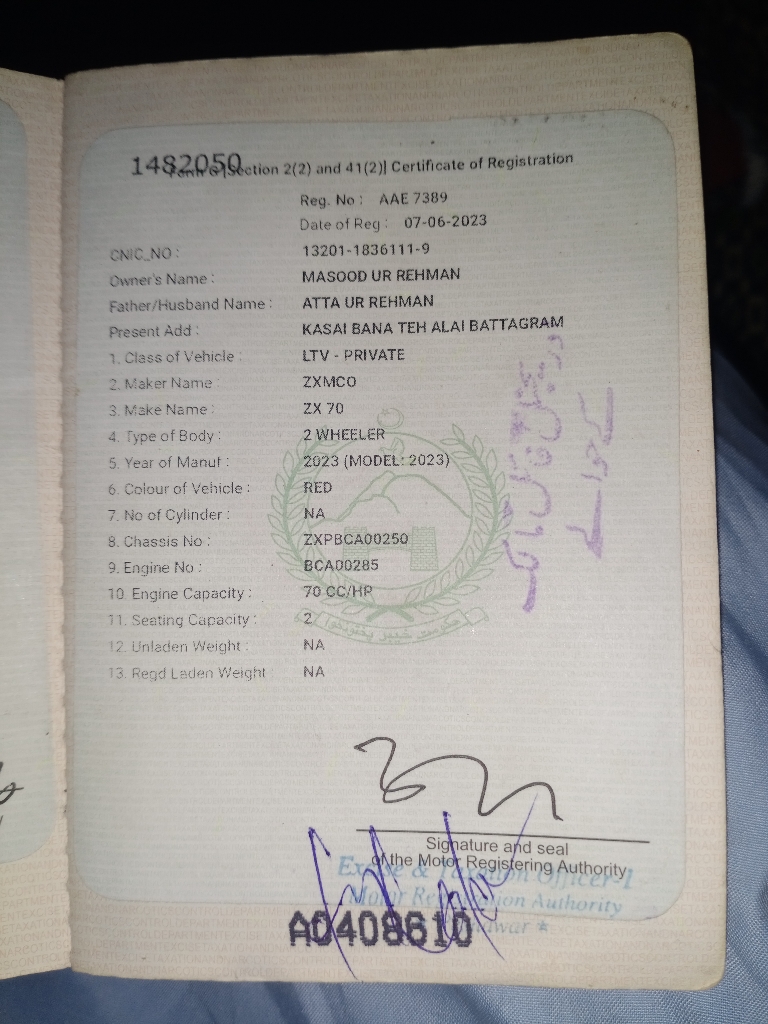 1482050
Form G |Section 2(2) and 41(2)| Certificate of Registration
Reg. No : AAE 7389
Date of Reg : 07-06-2023
CNIC_NO : 13201-1836111-9
Owner's Name : MASOOD UR REHMAN
Father/Husband Name : ATTA UR REHMAN
Present Add : KASAI BANA TEH ALAI BATTAGRAM
1. Class of Vehicle : LTV - PRIVATE
2. Maker Name : ZXMCO
3. Make Name : ZX 70
4. Type of Body : 2 WHEELER
5. Year of Manuf : 2023 (MODEL: 2023)
6. Colour of Vehicle : RED
7. No of Cylinder : NA
8. Chassis No : ZXPBCA00250
9. Engine No : BCA00285
10. Engine Capacity : 70 CC/HP
11. Seating Capacity : 2
12. Unladen Weight : NA
13. Regd Laden Weight : NA
حکومت خیبر پختونخوا
اوریجنل فائل مالک
کے حوالے
Signature and seal
of the Motor Registering Authority
Excise & Taxation Officer-1
Motor Registration Authority
Peshawar ★
A0408610